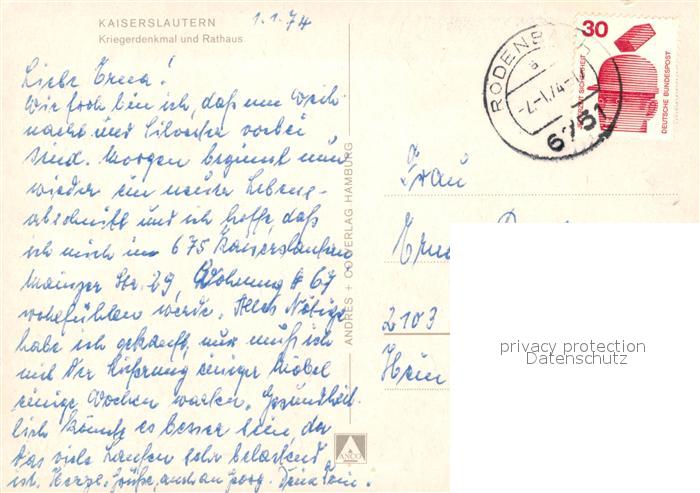 KAISERSLAUTERN
Kriegerdenkmal und Rathaus
1.1.74
Liebe Erna!
Wie froh bin ich, daß nun Weih-
nacht und Silvester vorbei
sind. Morgen beginnt nun
wieder ein neuer Lebens-
abschnitt und ich hoffe, daß
ich mich in 675 Kaiserslautern
Mainzer Str. 29, Wohnung # 67
wohlfühlen werde. Alles Nötige
habe ich gekauft, nur muß ich
mit der Lieferung einiger Möbel
einige Wochen warten. Gesundheit-
lich könnte es besser sein da
das viele Laufen sehr belastend
ist. Herzl. Grüße, auch an Georg. Deine
ANDRES + CO VERLAG HAMBURG
ANCO
RODENB
-2.-1.74-
a
6751
30
JEDERZEIT SICHERHEIT
DEUTSCHE BUNDESPOST
Frau
2103
privacy protection
Datenschutz